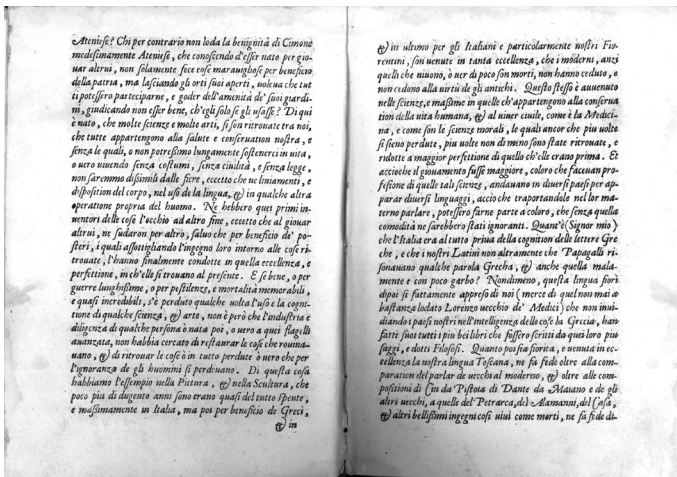 Ateniese? Chi per contrario non loda la benignità di Cimone
medesimamente Ateniese, che conoscendo d'esser nato per gio-
uar altrui, non solamente fece cose marauigliose per beneficio
della patria, ma lasciando gli orti suoi aperti, voleua che tut
ti potessero parteciparne, e goder dell'amenità de' suoi giardi-
ni, giudicando non esser bene, ch'egli solo se gli usasse? Di qui
è nato, che molte scienze e molte arti, si son ritrouate tra noi,
che tutte appartengono alla salute e conseruation nostra, e
senza le quali, o non potressimo lungamente sostenerci in uita,
o uero uiuendo senza costumi, senza ciuilità, e senza legge,
non saremmo dissimili dalle fiere, eccetto che ne liniamenti, e
disposition del corpo, nel uso de la lingua, & in qualche altra
operatione propria del huomo. Ne hebbero quei primi in-
uentori delle cose l'occhio ad altro fine, eccetto che al giouar
altrui, ne sudaron per altro, saluo che per beneficio de' po-
steri, i quali assottigliando l'ingegno loro intorno alle cose ri-
trouate, l'hanno finalmente condotte in quella eccellenza, e
perfettione, in ch'elle si trouano al presente. E se bene, o per
guerre lunghissime, o per pestilenze, e mortalità memorabili,
e quasi incredibili, s'è perduto qualche uolta l'uso e la cogni-
tione di qualche scienza, & arte, non è però che l'industria e
diligenza di qualche persona ò nata poi, o uero a quei flagelli
auanzata, non habbia cercato di restaurar le cose che rouina-
uano, & di ritrouar le cose ò in tutto perdute ò uero che per
l'ignoranza de gli huomini si perdeuano. Di questa cosa
habbiamo l'essempio nella Pittura, & nella Scultura, che
poco piu di dugento anni sono erano quasi del tutto spente,
e massimamente in Italia, ma poi per beneficio de Greci,
& in
& in ultimo per gli Italiani e particolarmente nostri Fio-
rentini, son uenute in tanta eccellenza, che i moderni, anzi
quelli che uiuono, ò uer di poco son morti, non hanno ceduto, e
non cedono alla uirtù de gli antichi. Questo stesso è auuenuto
nelle scienze, e massime in quelle ch'appartengono alla conserua
tion della uita humana, & al uiuer ciuile, come è la Medici-
na, e come son le scienze morali, le quali ancor che piu uolte
si sieno perdute, piu uolte non di meno sono state ritrouate, e
ridotte a maggior perfettione di quello ch'elle erano prima. Et
accioche il giouamento fusse maggiore, coloro che faceuan pro-
fesione di quelle tali scienze, andauano in diuersi paesi per ap-
parar diuersi linguaggi, accio che traportandole nel lor ma-
terno parlare, potessero farne parte a coloro, che senza quella
comodità ne sarebbero stati ignoranti. Quant'è (Signor mio)
che l'Italia era al tutto priua della cognition delle lettere Gre
che, e che i nostri Latini non altramente che Papagalli ri-
sonauano qualche parola Grecha, & anche quella mala-
mente e con poco garbo? Nondimeno, questa lingua fiorì
dipoi sì fattamente appresso di noi (merce di quel non mai a
bastanza lodato Lorenzo uecchio de' Medici) che non inui-
diando i paesi nostri nell'intelligenza delle cose la Grecia, han-
fatti suoi tutti i piu bei libri che fossero scritti da quei loro piu
saggi, e dotti Filosofi. Quanto poi sia fiorita, e uenuta in ec-
cellenza la nostra lingua Toscana, ne fa fede oltre alla com-
paration del parlar de uecchi al moderno, & oltre alle com-
positioni di Cin da Pistoia di Dante da Maiano e de gli
altri uecchi, a quelle del Petrarca, del Alamanni, del Casa,
& altri bellissimi ingegni così uiui come morti, ne fa fede di-